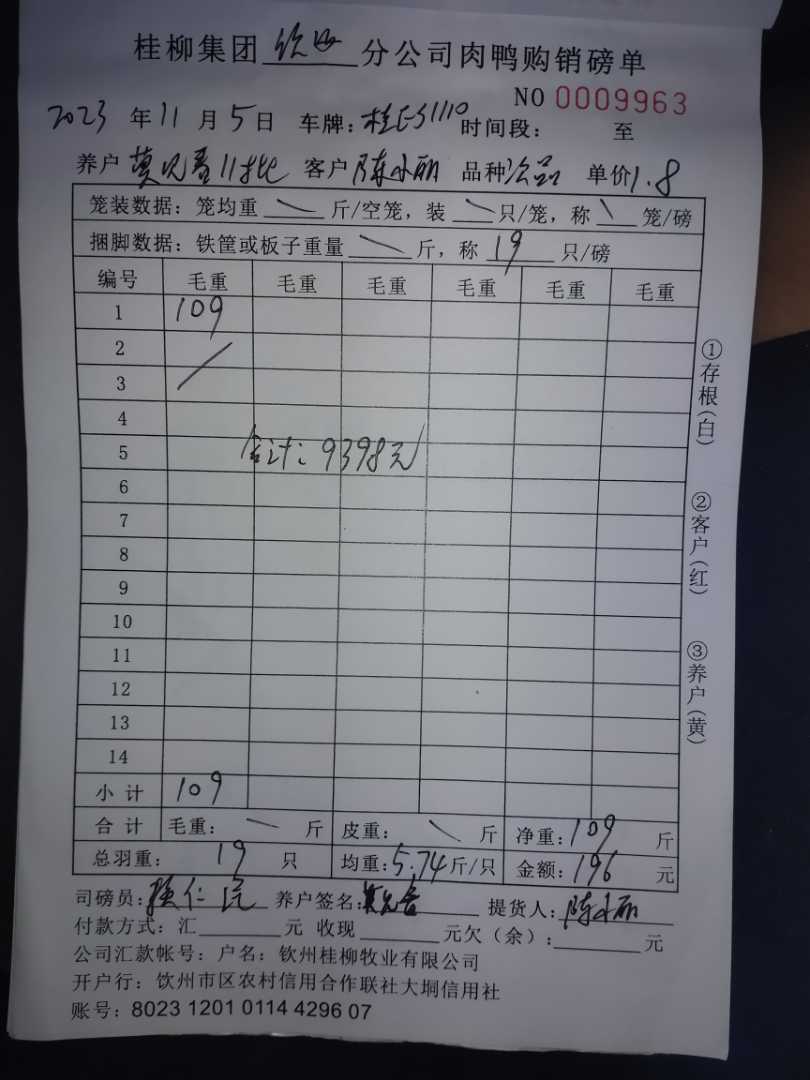 桂柳集团钦州分公司肉鸭购销磅单
NO 0009963
2023年11月5日 车牌:桂E51110 时间段: 至
养户 11批 客户 陈小丽 品种 次品 单价 1.8
笼装数据:笼均重 \ 斤/空笼,装 \ 只/笼,称 \ 笼/磅
捆脚数据:铁筐或板子重量 \ 斤,称 19 只/磅
编号 毛重 毛重 毛重 毛重 毛重 毛重
1 109
2
3
4
5
合计:9398元
6
7
8
9
10
11
12
13
14
小计 109
合计 毛重: \ 斤 皮重: \ 斤 净重:109 斤
总羽重: 19 只 均重:5.74斤/只 金额:196 元
司磅员: 养户签名: 提货人:陈小丽
付款方式:汇 元 收现 元欠(余): 元
公司汇款帐号:户名:钦州桂柳牧业有限公司
开户行:饮州市区农村信用合作联社大垌信用社
账号:8023 1201 0114 4296 07
①存根(白)
②客户(红)
③养户(黄)